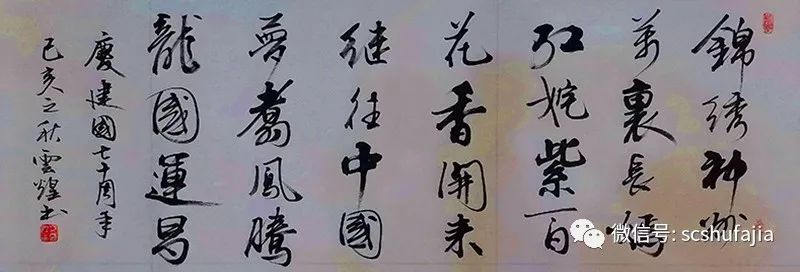 錦绣神州
萬裏長嫣
红姹紫百
花香開来
继往中國
夢翥鳳騰
龍國運昌
慶建國七十周年
己亥之秋雲煌书
微信号: scshufajia